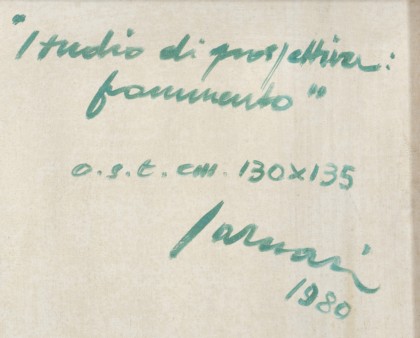 "Studio di prospettiva:
frammento"
o.s.t. cm. 130x135
Sarnari
1980